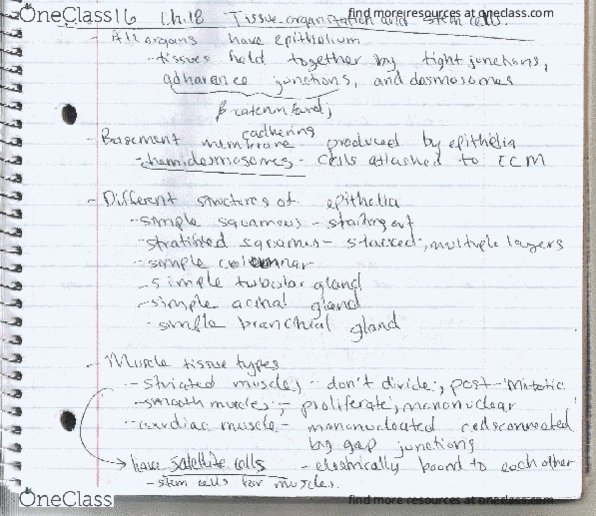 OneClass
16 Ch.18 Tissue organization and stem cells
find more resources at oneclass.com
- All organs have epithelium
- tissues held together by tight junctions,
adharance junctions, and desmosomes
β-catenin and
cadherins
- Basement membrane produced by epithelia
- hemidesmosomes - cells attached to ECM
- Different structures of epithelia
- simple squamous -
- stratified squamus - stacked, multiple layers
- simple columnar
- simple tubular gland
- simple acinal gland
- simple branchial gland
- Muscle tissue types
- striated muscles - don't divide, post-mitotic
- smooth muscles - proliferate, mononuclear
- cardiac muscle - mononucleated cells connected
by gap junctions
→ have satellite cells - electrically bound to each other
- stem cells for muscles.
OneClass
find more resources at oneclass.com